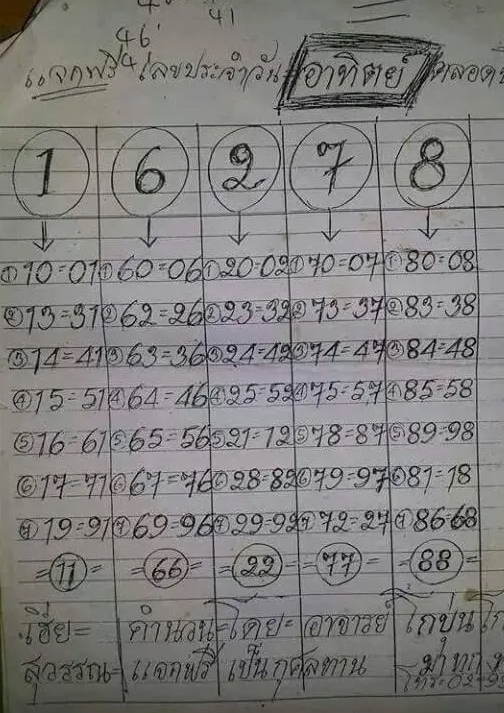 46
41
แจกฟรี เลขประจำวัน อาทิตย์ ตลอด
1 6 2 7 8
①10=01 ①60=06 ①20=02 ①70=07 ①80=08
②13=31 ②62=26 ②23=32 ②73=37 ②83=38
③14=41 ③63=36 ③24=42 ③74=47 ③84=48
④15=51 ④64=46 ④25=52 ④75=57 ④85=58
⑤16=61 ⑤65=56 ⑤21=12 ⑤78=87 ⑤89=98
⑥17=71 ⑥67=76 ⑥28=82 ⑥79=97 ⑥81=18
⑦19=91 ⑦69=96 ⑦29=92 ⑦72=27 ⑦86=68
=11= =66= =22= =77= =88=
เฮีย= คำนวน=โดย= อาจารย์ โกปุ่น
สุวรรณ= แจกฟรี เป็นกุศลทาน
โทร:02-9